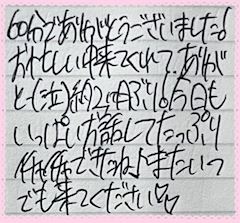 60分でありがとうございました!
おいそしい中来てくれて、ありが
と(泣)約2ヶ月ぶり!?今日も
いっぱいお話してたっぷり
イチャイチャできたね♪またいつ
でも来てください♡